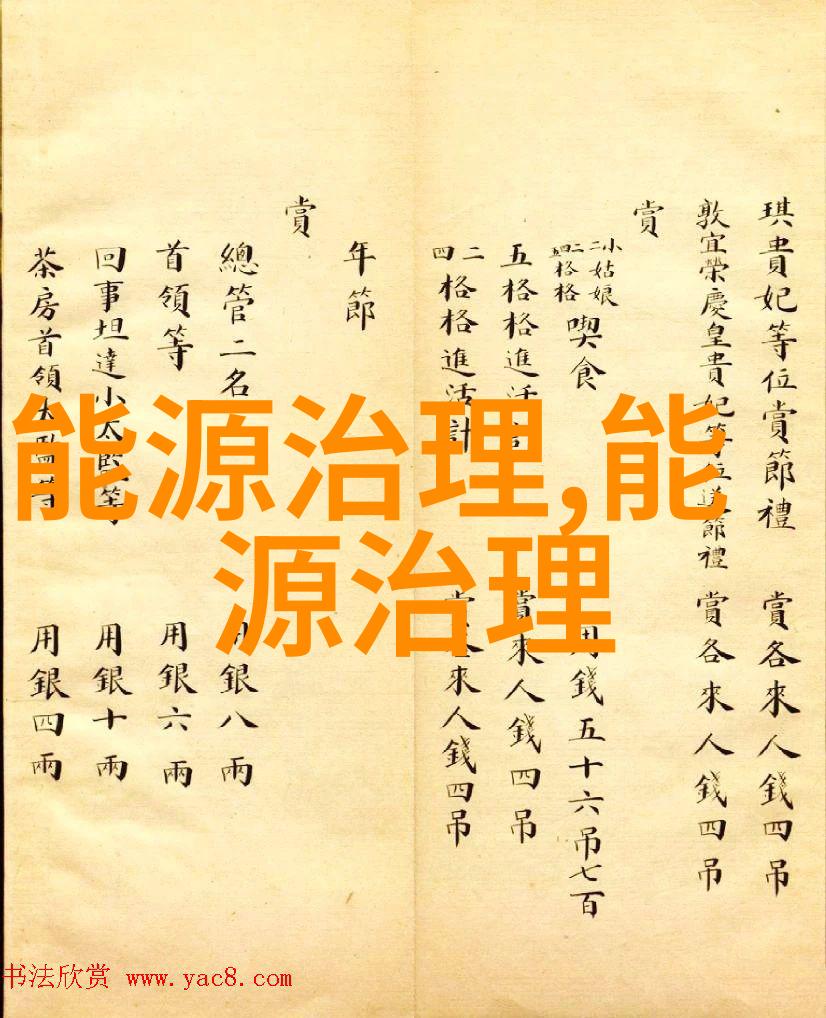 琪貴妃等位賞節禮 賞各來人錢四吊
敦宜榮慶皇貴妃等位送節禮 賞各來人錢四吊
賞
小姑娘
二二格格
四五格格 喫食 用錢五十六吊七百
五格格進活計 賞來人錢四吊
二四格格進活計 賞各來人錢四吊
年節
賞
總管二名 用銀八兩
首領等 用銀六兩
回事坦達小太監等 用銀十兩
茶房首領太監等 用銀四兩
能源治理,能
源治理
书法欣赏 www.yac8.com